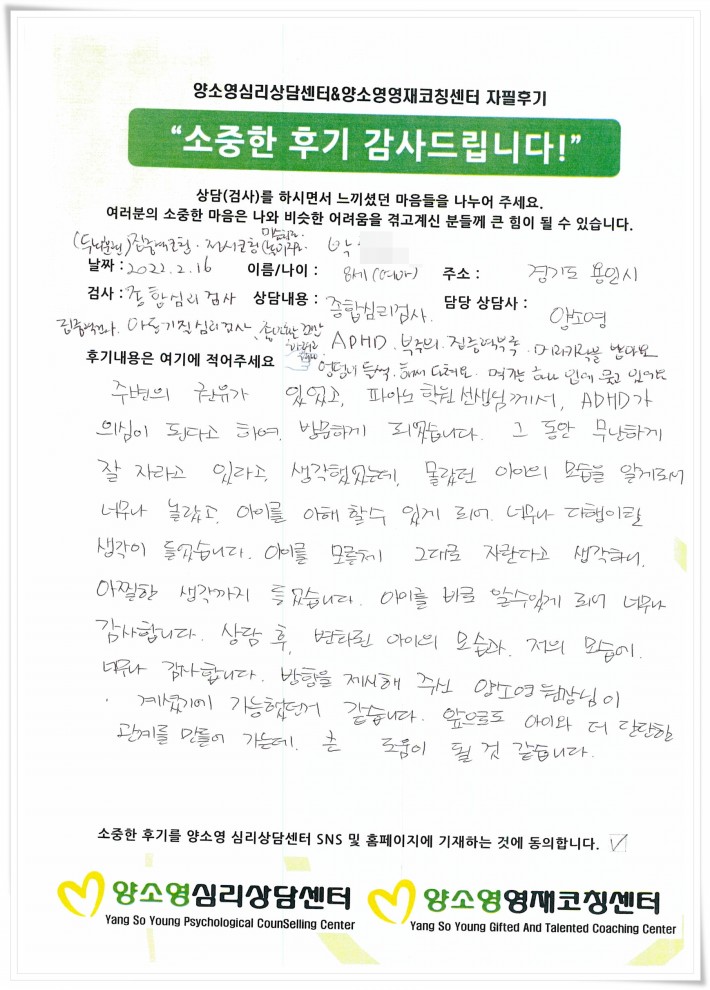 양소영심리상담센터&양소영영재코칭센터 자필후기
“소중한 후기 감사드립니다!”
상담(검사)를 하시면서 느끼셨던 마음들을 나누어 주세요.
여러분의 소중한 마음은 나와 비슷한 어려움을 겪고계신 분들께 큰 힘이 될 수 있습니다.
집중력코칭. 정서코칭 박
날짜 : 2022. 2. 16 이름/나이 : 8세 (여아) 주소 : 경기도 용인시
검사 : 종합심리검사 상담내용 : 종합심리검사. 담당 상담사 : 양소영
집중력검사. 아동기질심리검사, ADHD. 부주의. 집중력부족.
후기내용은 여기에 적어주세요
주변의 권유가 있었고, 피아노 학원선생님께서, ADHD가
의심이 된다고 하여. 방문하게 되었습니다. 그 동안 무난하게
잘 자라고 있다라고, 생각했었는데, 몰랐던 아이의 모습을 알게되서
너무나 놀랐고, 아이를 이해 할수 있게 되어. 너무나 다행이란
생각이 들었습니다. 아이를 모른체 그대로 자란다고 생각하니.
아찔한 생각까지 들었습니다. 아이를 바로 알수있게 되어 너무나
감사합니다. 상담 후, 변화된 아이의 모습과. 저의 모습에.
너무나 감사합니다. 방향을 제시해 주신 양소영 원장님이
계셨기에 가능했던거 같습니다. 앞으로도 아이와 더 단단한
관계를 만들어 가는데. 큰 도움이 될 것 같습니다.
소중한 후기를 양소영 심리상담센터 SNS 및 홈페이지에 기재하는 것에 동의합니다.
양소영심리상담센터
Yang So Young Psychological CounSelling Center
양소영영재코칭센터
Yang So Young Gifted And Talented Coaching Center